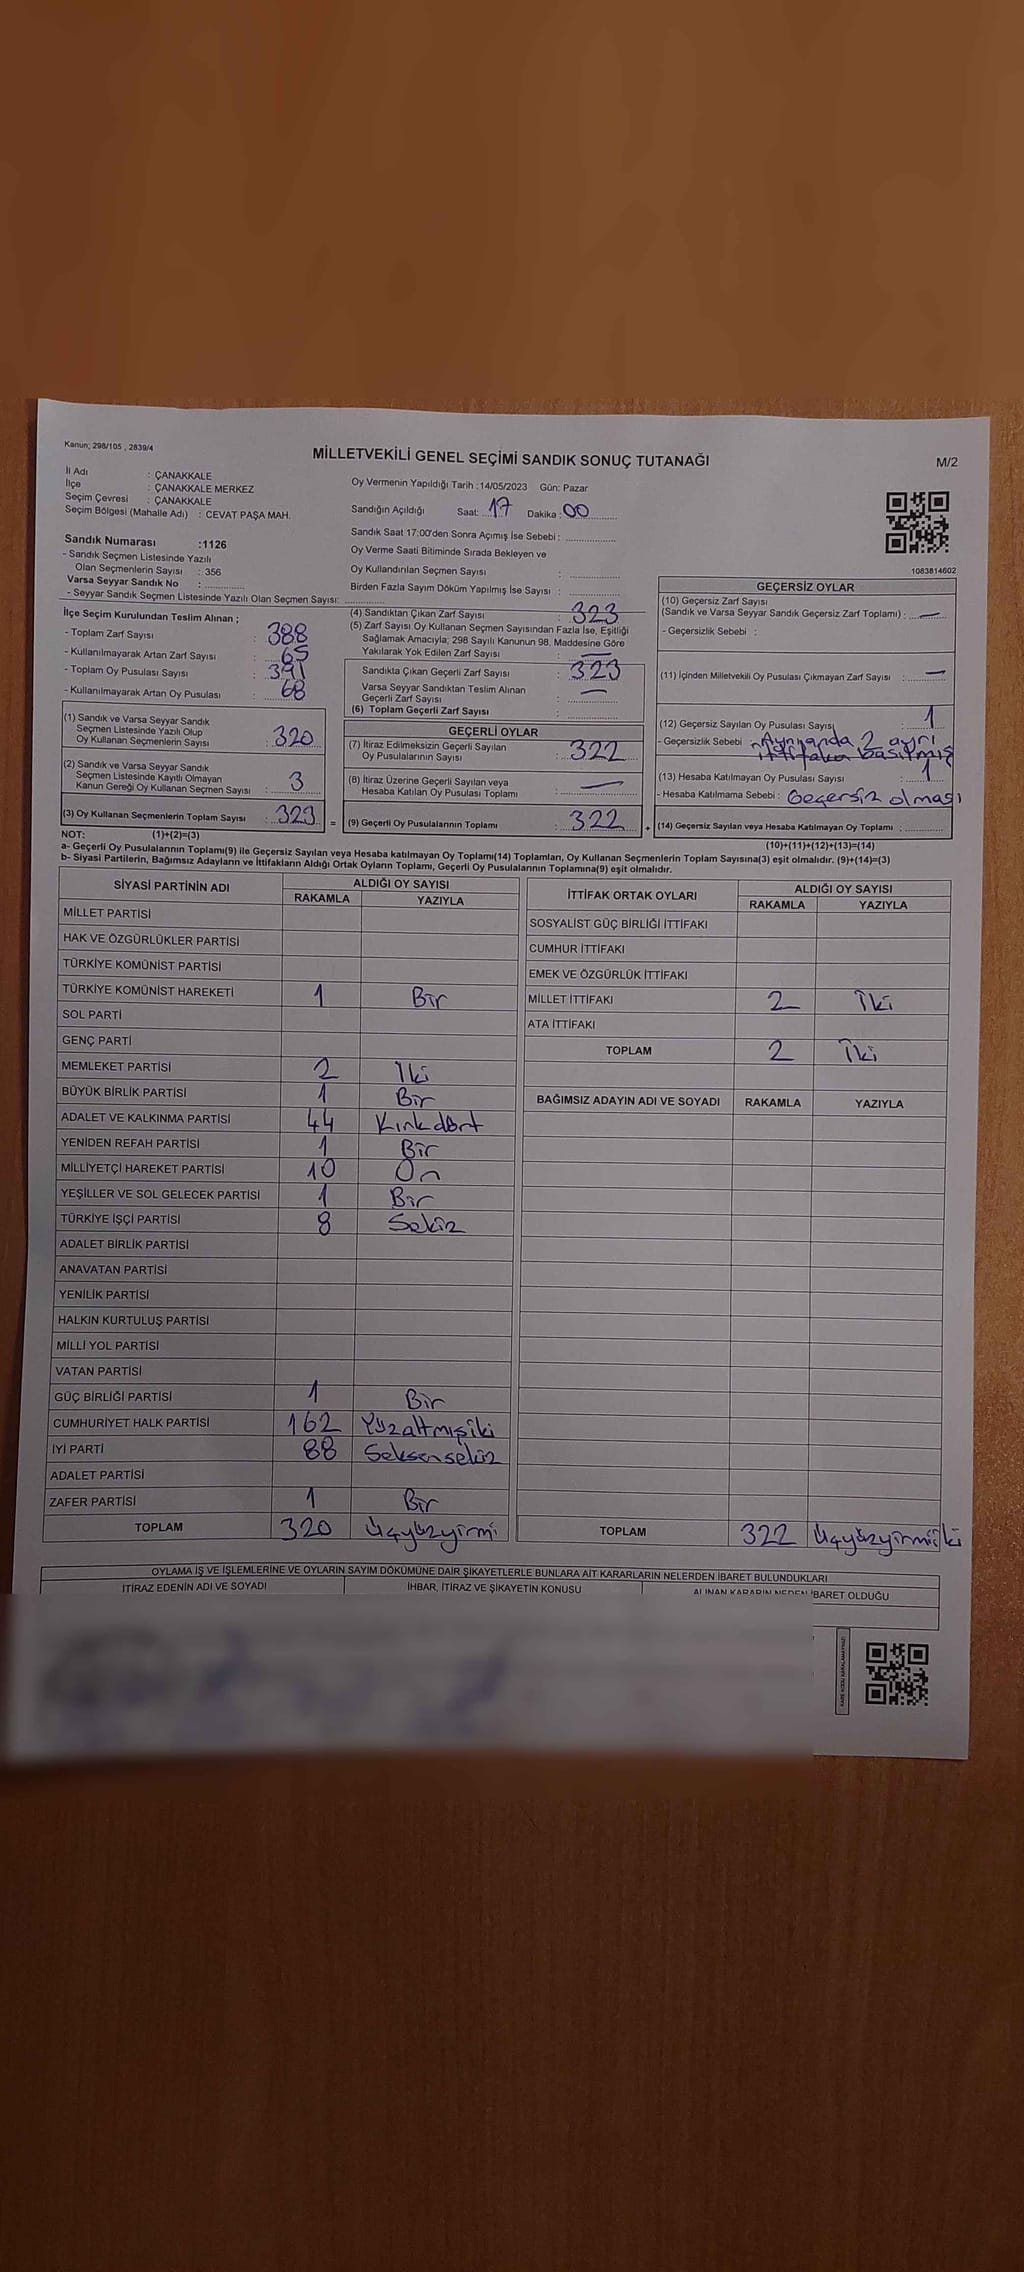 Kanun; 298/105 , 2839/4
MİLLETVEKİLİ GENEL SEÇİMİ SANDIK SONUÇ TUTANAĞI
M/2
İl Adı : ÇANAKKALE
İlçe : ÇANAKKALE MERKEZ
Seçim Çevresi : ÇANAKKALE
Seçim Bölgesi (Mahalle Adı) : CEVAT PAŞA MAH.
Oy Vermenin Yapıldığı Tarih :14/05/2023 Gün: Pazar
Sandığın Açıldığı Saat: 17 Dakika : 00
Sandık Saat 17:00'den Sonra Açımış İse Sebebi :
Oy Verme Saati Bitiminde Sırada Bekleyen ve
Oy Kullandırılan Seçmen Sayısı :
Birden Fazla Sayım Döküm Yapılmış İse Sayısı :
Sandık Numarası :1126
- Sandık Seçmen Listesinde Yazılı
Olan Seçmenlerin Sayısı : 356
Varsa Seyyar Sandık No :
- Seyyar Sandık Seçmen Listesinde Yazılı Olan Seçmen Sayısı:
1083814602
İlçe Seçim Kurulundan Teslim Alınan ;
- Toplam Zarf Sayısı : 388
- Kullanılmayarak Artan Zarf Sayısı : 65
- Toplam Oy Pusulası Sayısı : 391
- Kullanılmayarak Artan Oy Pusulası : 68
(1) Sandık ve Varsa Seyyar Sandık
Seçmen Listesinde Yazılı Olup
Oy Kullanan Seçmenlerin Sayısı : 320
(2) Sandık ve Varsa Seyyar Sandık
Seçmen Listesinde Kayıtlı Olmayan
Kanun Gereği Oy Kullanan Seçmen Sayısı : 3
(3) Oy Kullanan Seçmenlerin Toplam Sayısı : 323 =
(4) Sandıktan Çıkan Zarf Sayısı : 323
(5) Zarf Sayısı Oy Kullanan Seçmen Sayısından Fazla İse, Eşitliği
Sağlamak Amacıyla; 298 Sayılı Kanunun 98. Maddesine Göre
Yakılarak Yok Edilen Zarf Sayısı : —
Sandıkta Çıkan Geçerli Zarf Sayısı : 323
Varsa Seyyar Sandıktan Teslim Alınan
Geçerli Zarf Sayısı : —
(6) Toplam Geçerli Zarf Sayısı :
GEÇERLİ OYLAR
(7) İtiraz Edilmeksizin Geçerli Sayılan
Oy Pusulalarının Sayısı : 322
(8) İtiraz Üzerine Geçerli Sayılan veya
Hesaba Katılan Oy Pusulası Toplamı : —
(9) Geçerli Oy Pusulalarının Toplamı : 322 +
GEÇERSİZ OYLAR
(10) Geçersiz Zarf Sayısı
(Sandık ve Varsa Seyyar Sandık Geçersiz Zarf Toplamı) : —
- Geçersizlik Sebebi :
(11) İçinden Milletvekili Oy Pusulası Çıkmayan Zarf Sayısı : —
(12) Geçersiz Sayılan Oy Pusulası Sayısı : 1
- Geçersizlik Sebebi : Aynı anda 2 ayrı
ittifaka basılmış
(13) Hesaba Katılmayan Oy Pusulası Sayısı : 1
- Hesaba Katılmama Sebebi : Geçersiz olması
(14) Geçersiz Sayılan veya Hesaba Katılmayan Oy Toplamı :
NOT: (1)+(2)=(3)
(10)+(11)+(12)+(13)=(14)
a- Geçerli Oy Pusulalarının Toplamı(9) ile Geçersiz Sayılan veya Hesaba katılmayan Oy Toplamı(14) Toplamları, Oy Kullanan Seçmenlerin Toplam Sayısına(3) eşit olmalıdır. (9)+(14)=(3)
b- Siyasi Partilerin, Bağımsız Adayların ve İttifakların Aldığı Ortak Oyların Toplamı, Geçerli Oy Pusulalarının Toplamına(9) eşit olmalıdır.
SİYASİ PARTİNİN ADI ALDIĞI OY SAYISI
RAKAMLA YAZIYLA
MİLLET PARTİSİ
HAK VE ÖZGÜRLÜKLER PARTİSİ
TÜRKİYE KOMÜNİST PARTİSİ
TÜRKİYE KOMÜNİST HAREKETİ 1 Bir
SOL PARTİ
GENÇ PARTİ
MEMLEKET PARTİSİ 2 İki
BÜYÜK BİRLİK PARTİSİ 1 Bir
ADALET VE KALKINMA PARTİSİ 44 Kırkdört
YENİDEN REFAH PARTİSİ 1 Bir
MİLLİYETÇİ HAREKET PARTİSİ 10 On
YEŞİLLER VE SOL GELECEK PARTİSİ 1 Bir
TÜRKİYE İŞÇİ PARTİSİ 8 Sekiz
ADALET BİRLİK PARTİSİ
ANAVATAN PARTİSİ
YENİLİK PARTİSİ
HALKIN KURTULUŞ PARTİSİ
MİLLİ YOL PARTİSİ
VATAN PARTİSİ
GÜÇ BİRLİĞİ PARTİSİ 1 Bir
CUMHURİYET HALK PARTİSİ 162 Yüzaltmışiki
İYİ PARTİ 88 Seksensekiz
ADALET PARTİSİ
ZAFER PARTİSİ 1 Bir
TOPLAM 320 Üçyüzyirmi
İTTİFAK ORTAK OYLARI ALDIĞI OY SAYISI
RAKAMLA YAZIYLA
SOSYALİST GÜÇ BİRLİĞİ İTTİFAKI
CUMHUR İTTİFAKI
EMEK VE ÖZGÜRLÜK İTTİFAKI
MİLLET İTTİFAKI 2 İki
ATA İTTİFAKI
TOPLAM 2 İki
BAĞIMSIZ ADAYIN ADI VE SOYADI RAKAMLA YAZIYLA
TOPLAM 322 Üçyüzyirmiiki
OYLAMA İŞ VE İŞLEMLERİNE VE OYLARIN SAYIM DÖKÜMÜNE DAİR ŞİKAYETLERLE BUNLARA AİT KARARLARIN NELERDEN İBARET BULUNDUKLARI
İTİRAZ EDENİN ADI VE SOYADI İHBAR, İTİRAZ VE ŞİKAYETİN KONUSU ALINAN KARARIN NEDEN İBARET OLDUĞU